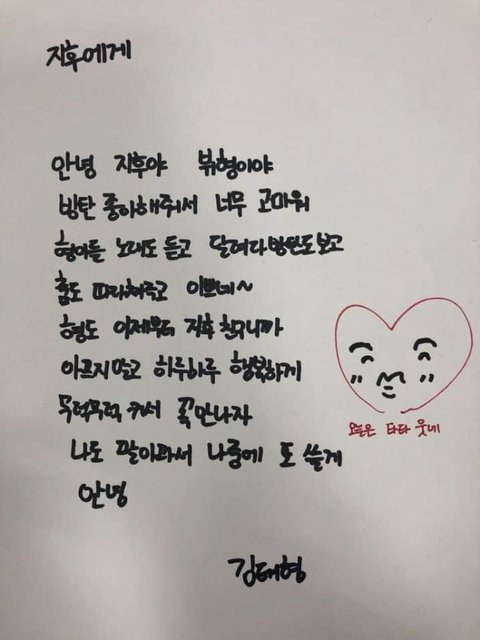 지후에게
안녕 지후야 뷔형이야
방탄 좋아해줘서 너무 고마워
형아들 노래도 듣고 달려라방탄도 보고
춤도 따라해주고 이쁘네~
형도 이제부터 지후 친구니까
아프지말고 하루하루 행복하게
무럭무럭 커서 꼭 만나자
나도 팔아파서 나중에 또 쓸게
안녕
김태형
오늘은 타타 웃네